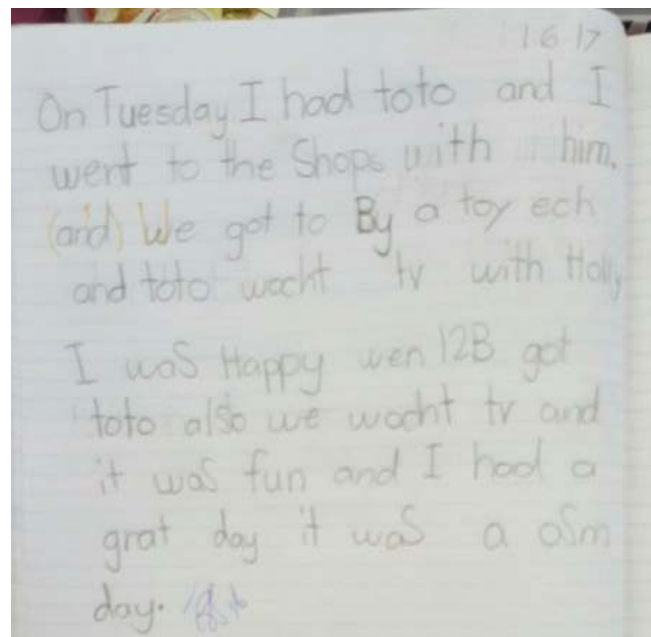 1 6 17
On Tuesday I had toto and I
went to the Shops with him.
(and) We got to By a toy ech
and toto wacht tv with Holly
I was Happy wen 12B got
toto also we wacht tv and
it was fun and I had a
grat day it was a osm
day.